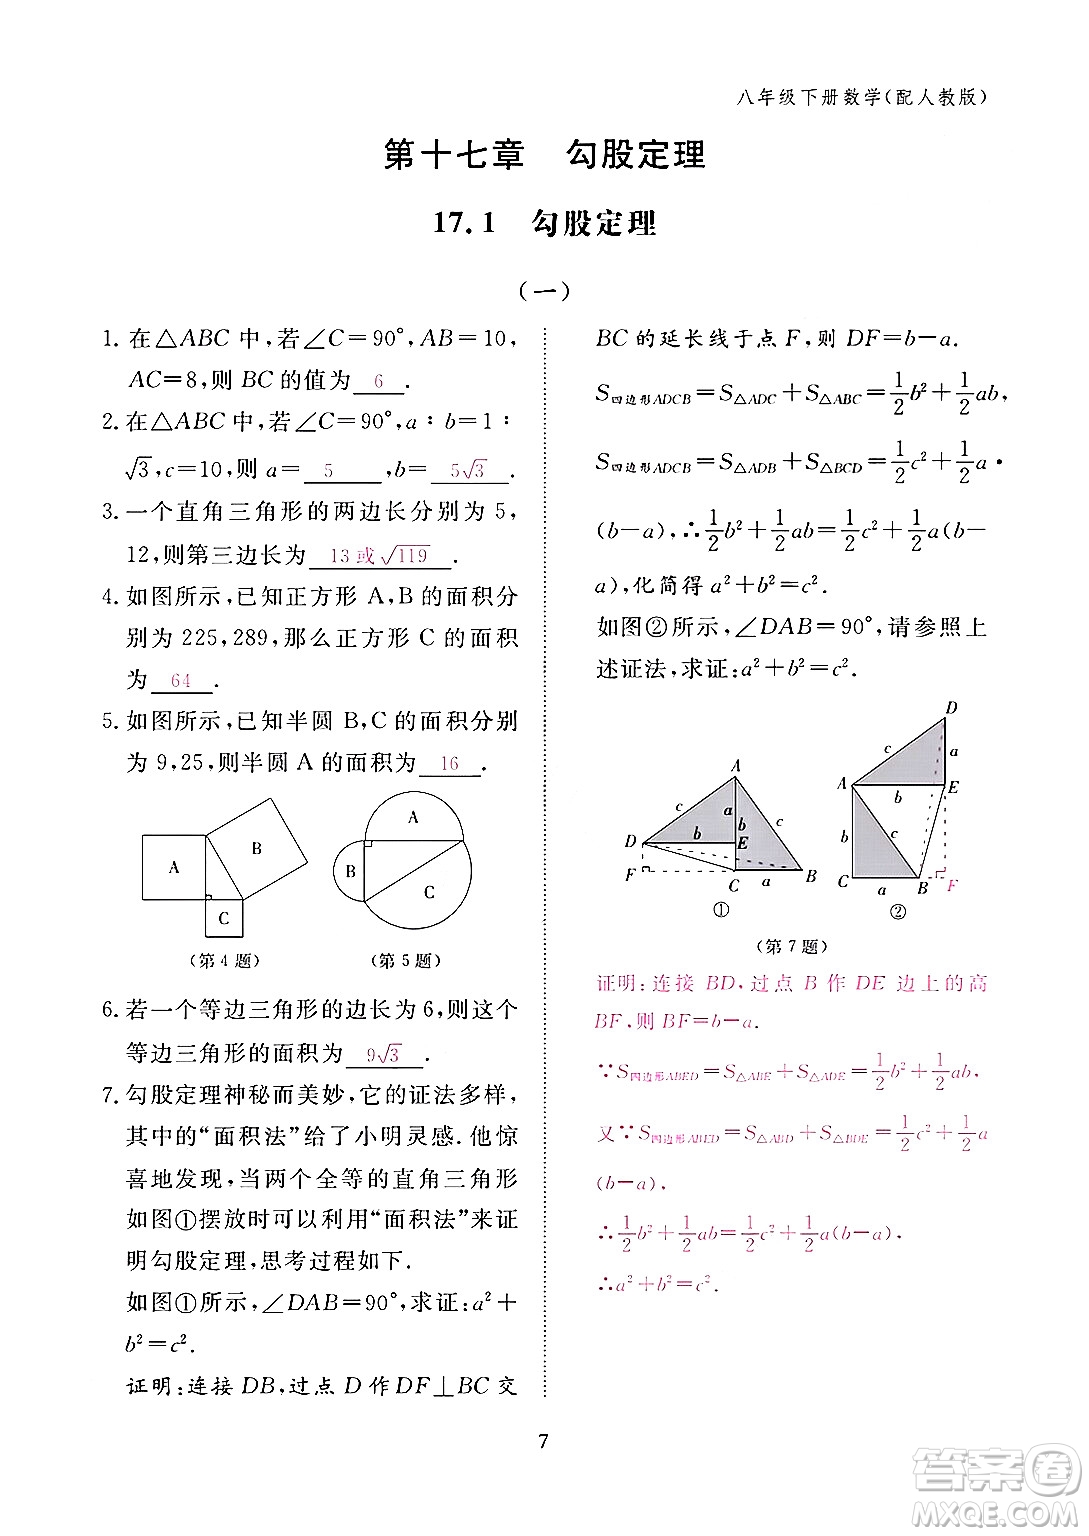 八年级下册数学(配人教版)
第十七章 勾股定理
17.1 勾股定理
(一)
1. 在△ABC 中,若∠C=90°,AB=10,
AC=8,则 BC 的值为 6 .
2. 在△ABC中,若∠C=90°,a∶b=1∶
√3,c=10,则 a= 5 ,b= 5√3 .
3. 一个直角三角形的两边长分别为 5,
12,则第三边长为 13或√119 .
4. 如图所示,已知正方形 A,B 的面积分
别为 225,289,那么正方形 C 的面积
为 64 .
5. 如图所示,已知半圆 B,C 的面积分别
为 9,25,则半圆 A 的面积为 16 .
A
B
C
(第 4 题)
A
B
C
(第 5 题)
6. 若一个等边三角形的边长为 6,则这个
等边三角形的面积为 9√3 .
7. 勾股定理神秘而美妙,它的证法多样,
其中的“面积法”给了小明灵感. 他惊
喜地发现,当两个全等的直角三角形
如图①摆放时可以利用“面积法”来证
明勾股定理,思考过程如下.
如图①所示,∠DAB=90°,求证:a²+
b²=c².
证明:连接 DB,过点 D 作 DF⊥BC 交
BC 的延长线于点 F,则 DF=b-a.
S四边形ADCB=S△ADC+S△ABC=1/2b²+1/2ab,
S四边形ADCB=S△ADB+S△BCD=1/2c²+1/2a·
(b-a),∴1/2b²+1/2ab=1/2c²+1/2a(b-
a),化简得 a²+b²=c².
如图②所示,∠DAB=90°,请参照上
述证法,求证:a²+b²=c².
A
c
a
c
b
b
D
E
F
C
a
B
①
D
c
a
A
b
E
b
c
C
a
B
F
②
(第 7 题)
证明:连接 BD,过点 B 作 DE 边上的高
BF,则 BF=b-a.
∵S四边形ABED=S△ABE+S△ADE=1/2b²+1/2ab,
又∵S四边形ABED=S△ABD+S△BDE=1/2c²+1/2a
(b-a),
∴1/2b²+1/2ab=1/2c²+1/2a(b-a),
∴a²+b²=c².
7
答案卷
MXQE.COM